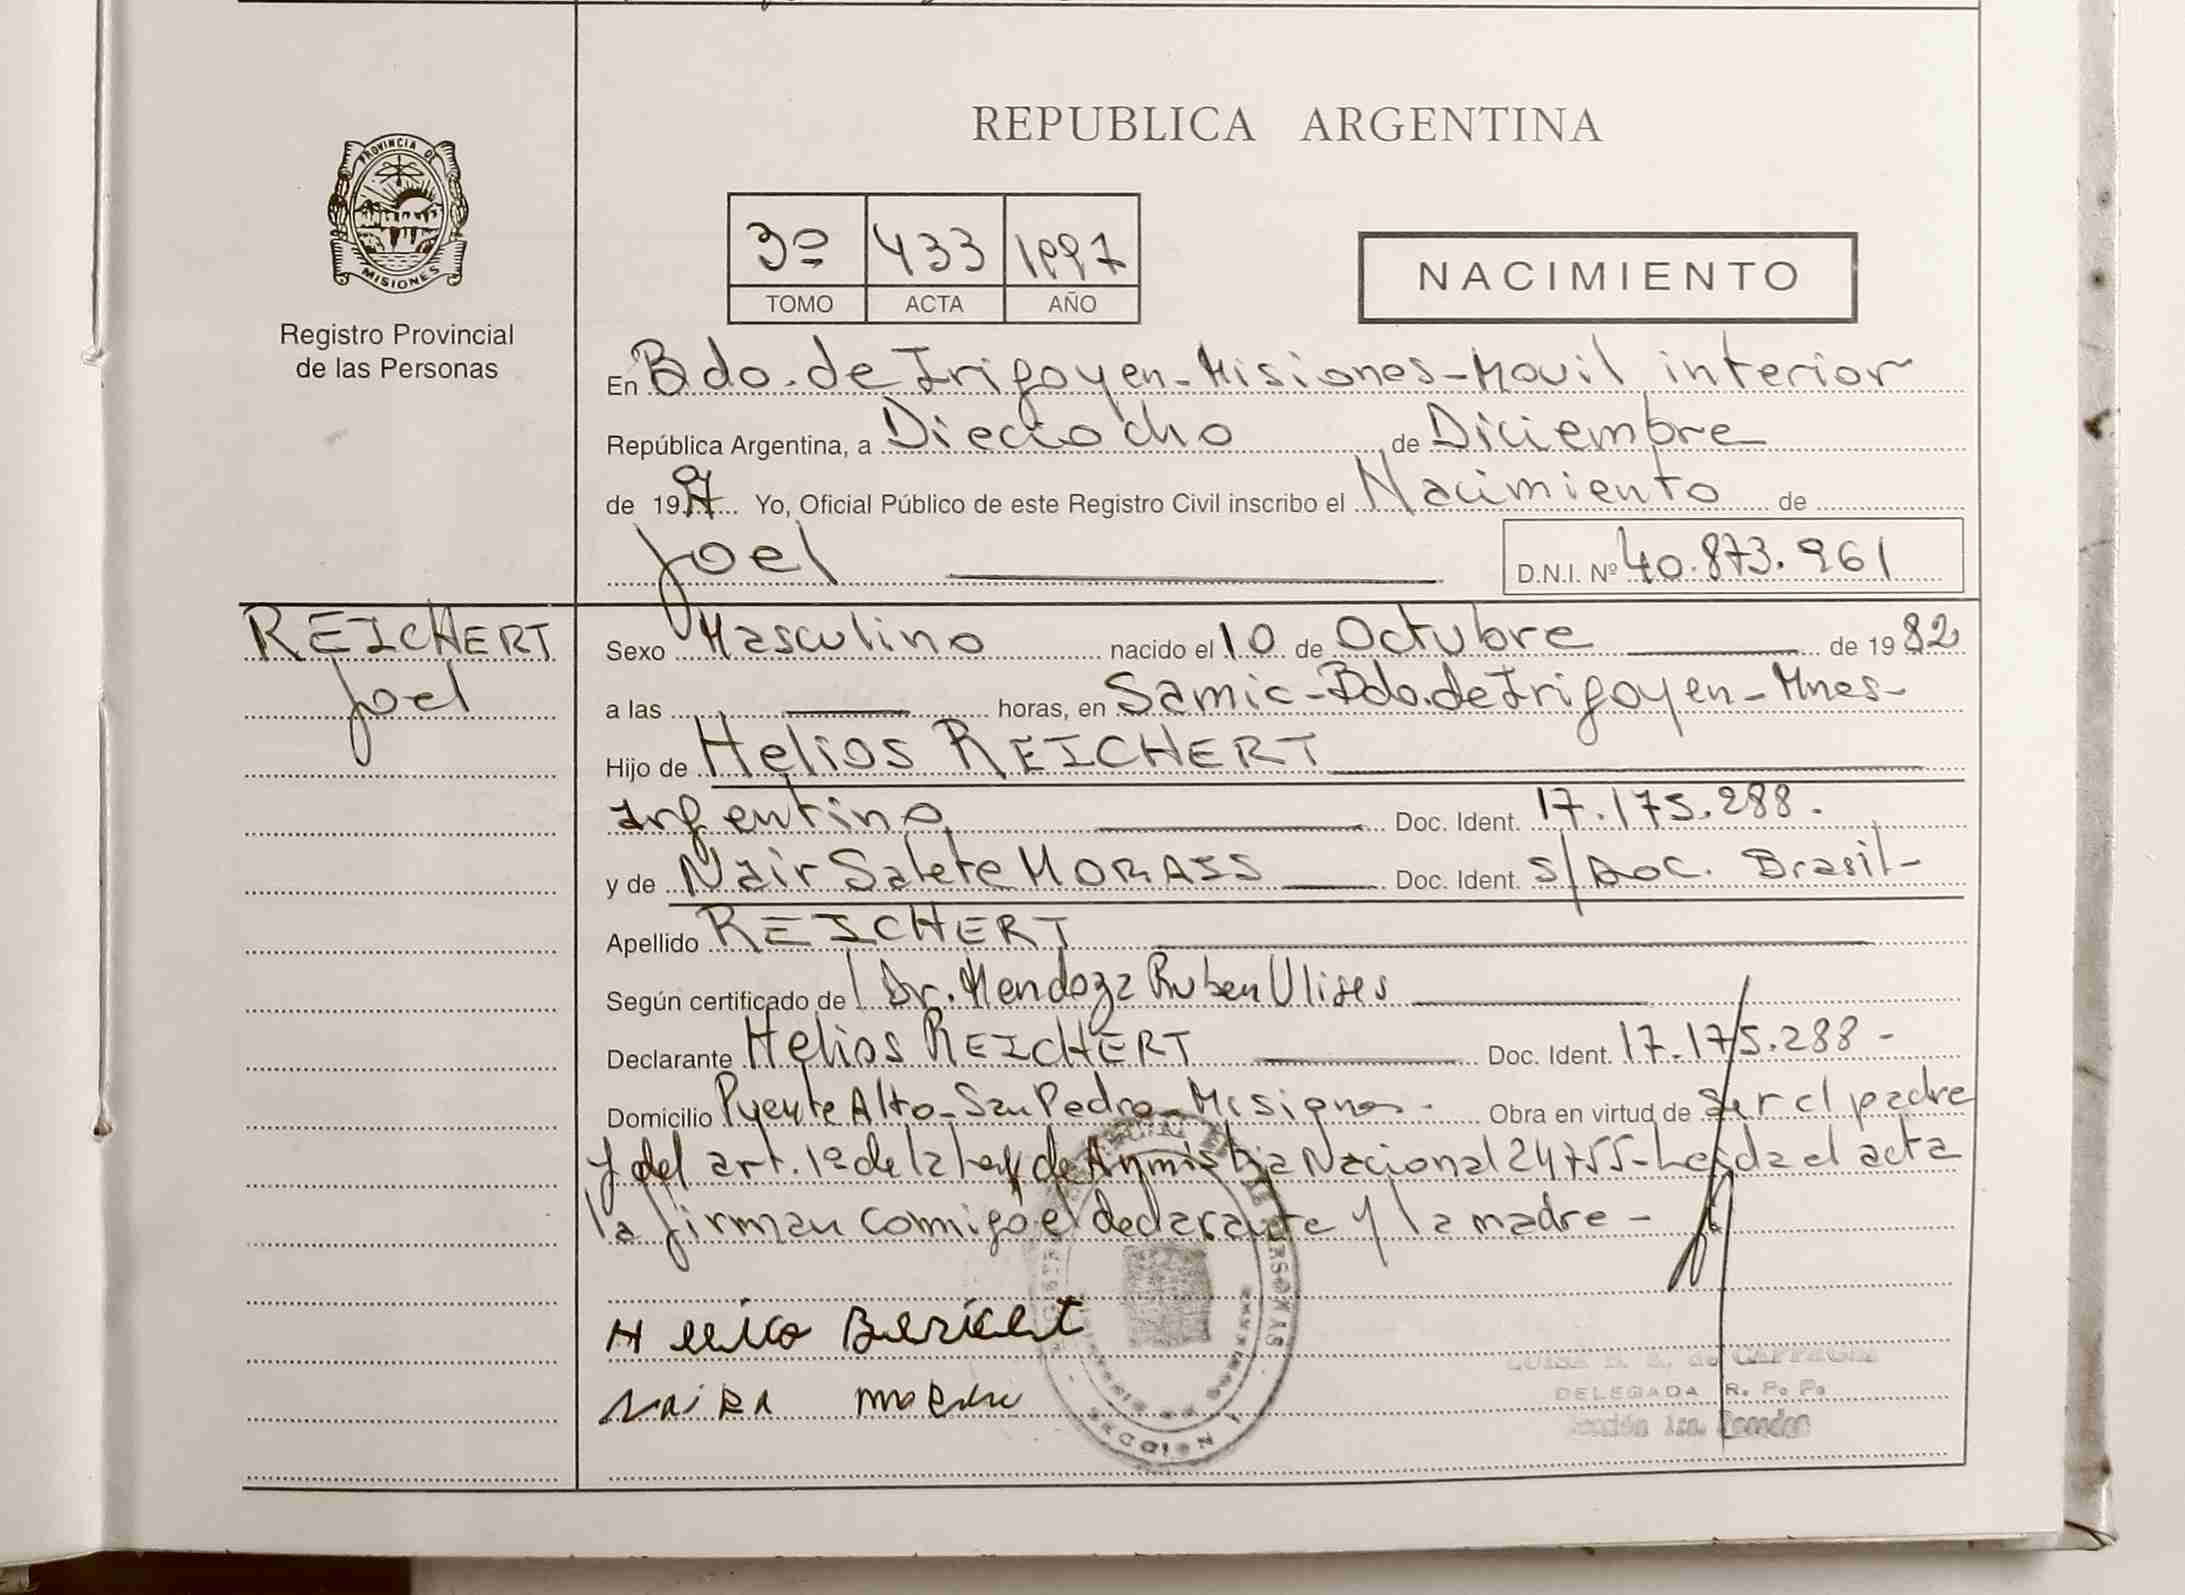 PROVINCIA DE
MISIONES
Registro Provincial
de las Personas
REPUBLICA ARGENTINA
3º 433 1997
TOMO ACTA AÑO
NACIMIENTO
En Bdo. de Irigoyen - Misiones - Movil interior
República Argentina, a Dieciocho de Diciembre
de 1997 Yo, Oficial Público de este Registro Civil inscribo el Nacimiento de
Joel D.N.I. Nº 40.873.961
REICHERT
Joel
Sexo Masculino nacido el 10 de Octubre de 1982
a las horas, en Samic - Bdo. de Irigoyen - Mnes -
Hijo de Helios REICHERT
Argentino Doc. Ident. 17.175.288.
y de Nair Salete MORAIS Doc. Ident. S/Doc. Brasil -
Apellido REICHERT
Según certificado de Dr. Mendoza Ruben Ulises
Declarante Helios REICHERT Doc. Ident. 17.175.288 -
Domicilio Puente Alto - San Pedro - Misiones - Obra en virtud de ser el padre
y del art. 1º de la Ley de Anmistia Nacional 24755 - Leida el acta
la firman comigo el declarante y la madre -
DELEGADA R. P. P.